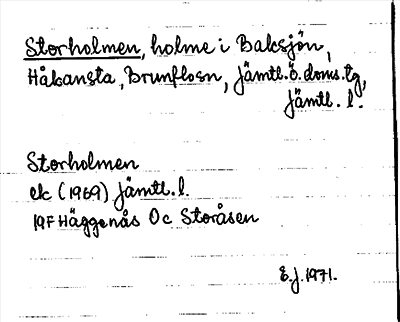 Storholmen, holme i Baksjön,
Håkansta, Brunflosn, Jämtl.ö.doms.tg,
Jämtl. l.
Storholmen
ek (1969) Jämtl. l.
19F Häggenås Oc Storåsen
E.J. 1971.